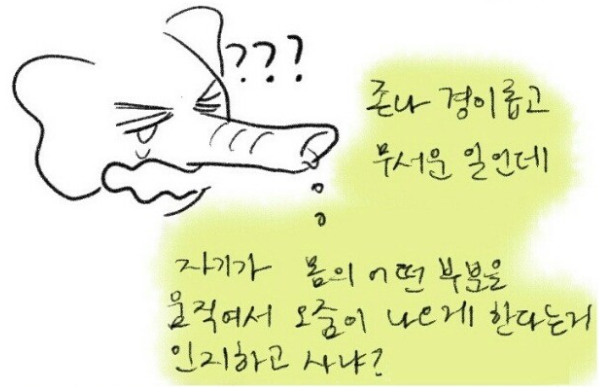 ???
존나 경이롭고
무서운 일인데
자기가 몸의 어떤 부분을
움직여서 오줌이 나오게 한다는거
인지하고 사냐?